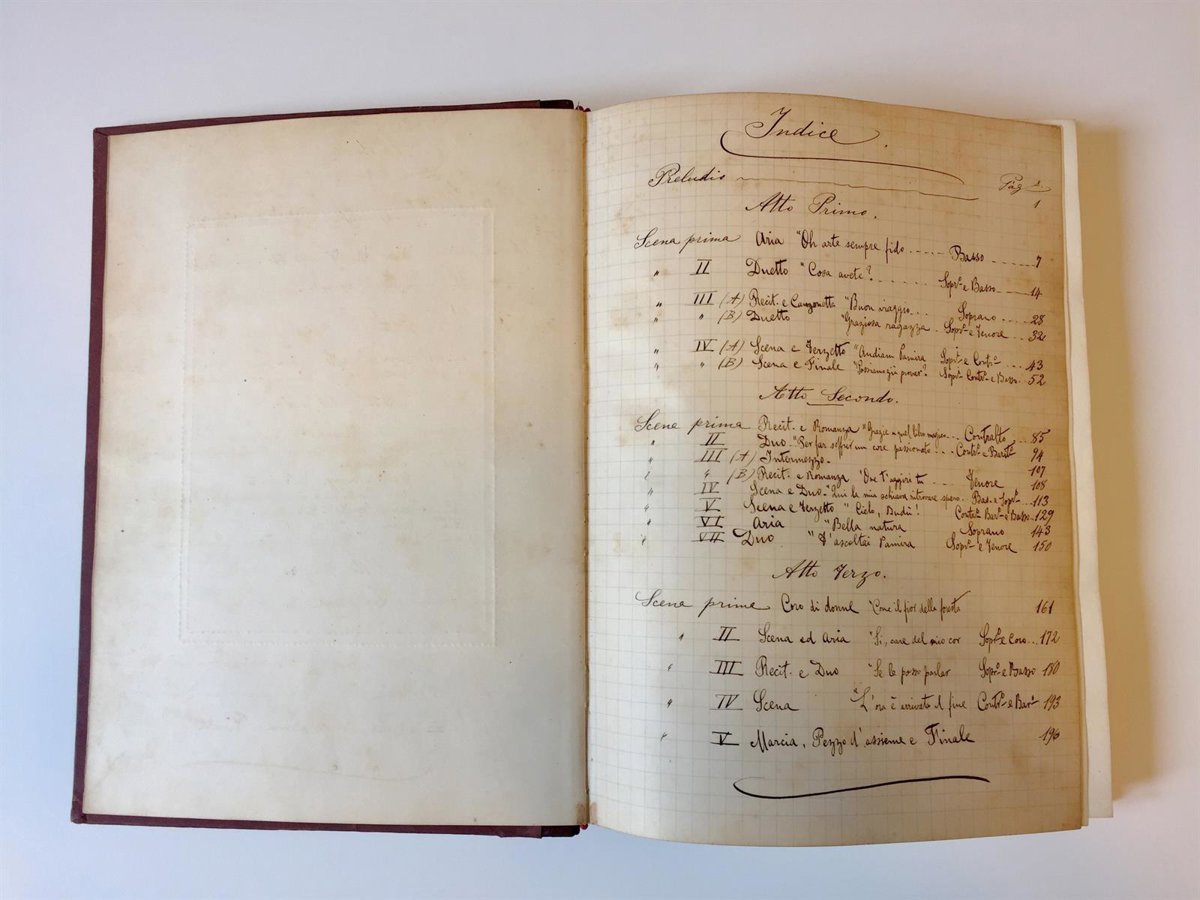 Indice.
Preludio Pág.s 1
Atto Primo.
Scena prima Aria "Oh arte sempre fido ..... Basso ..... 7
" II Duetto "Cosa avete? ..... Sopr.º e Basso .... 14
" III (A) Recit. e Canzonetta "Buon viaggio... Soprano ..... 28
" " (B) Duetto "Graziosa ragazza .. Sopr.º e Tenore .... 32
" IV (A) Scena e Terzetto "Andiam Pamira Sopr.º e Contr.º ... 43
" " (B) Scena e Finale Sopr.º Contr.º e Basso. 52
Atto Secondo.
Scene prima Recit. e Romanza "Grazie a quel libro magico... Contralto .. 85
" II Duo "Per far soffrir un core passionato ... Contr.º e Barit.º 94
" III (A) Intermezzo. 107
" " (B) Recit. e Romanza Tenore 108
" IV Scena e Duo - la mia schiava ritrovare spero. Bas. e Sopr.º ..113
" V Scena e Terzetto "Cielo, Budú! Contr.º Bar.º e Basso..129
" VI Aria "Bella natura Soprano 143
" VII Duo "T'ascoltai Pamira Sopr.º e Tenore 150
Atto Terzo.
Scene prime Coro di donne "Come il fior della foresta 161
" II Scena ed Aria "Si, care del mio cor Sopr.º e Coro... 172
" III Recit. e Duo "Se le posso parlar Sopr.º e Basso 180
" IV Scena "L'ora è arrivata il fine Contr.º e Bar.º 193
" V Marcia, Pezzo d'assieme e Finale 196